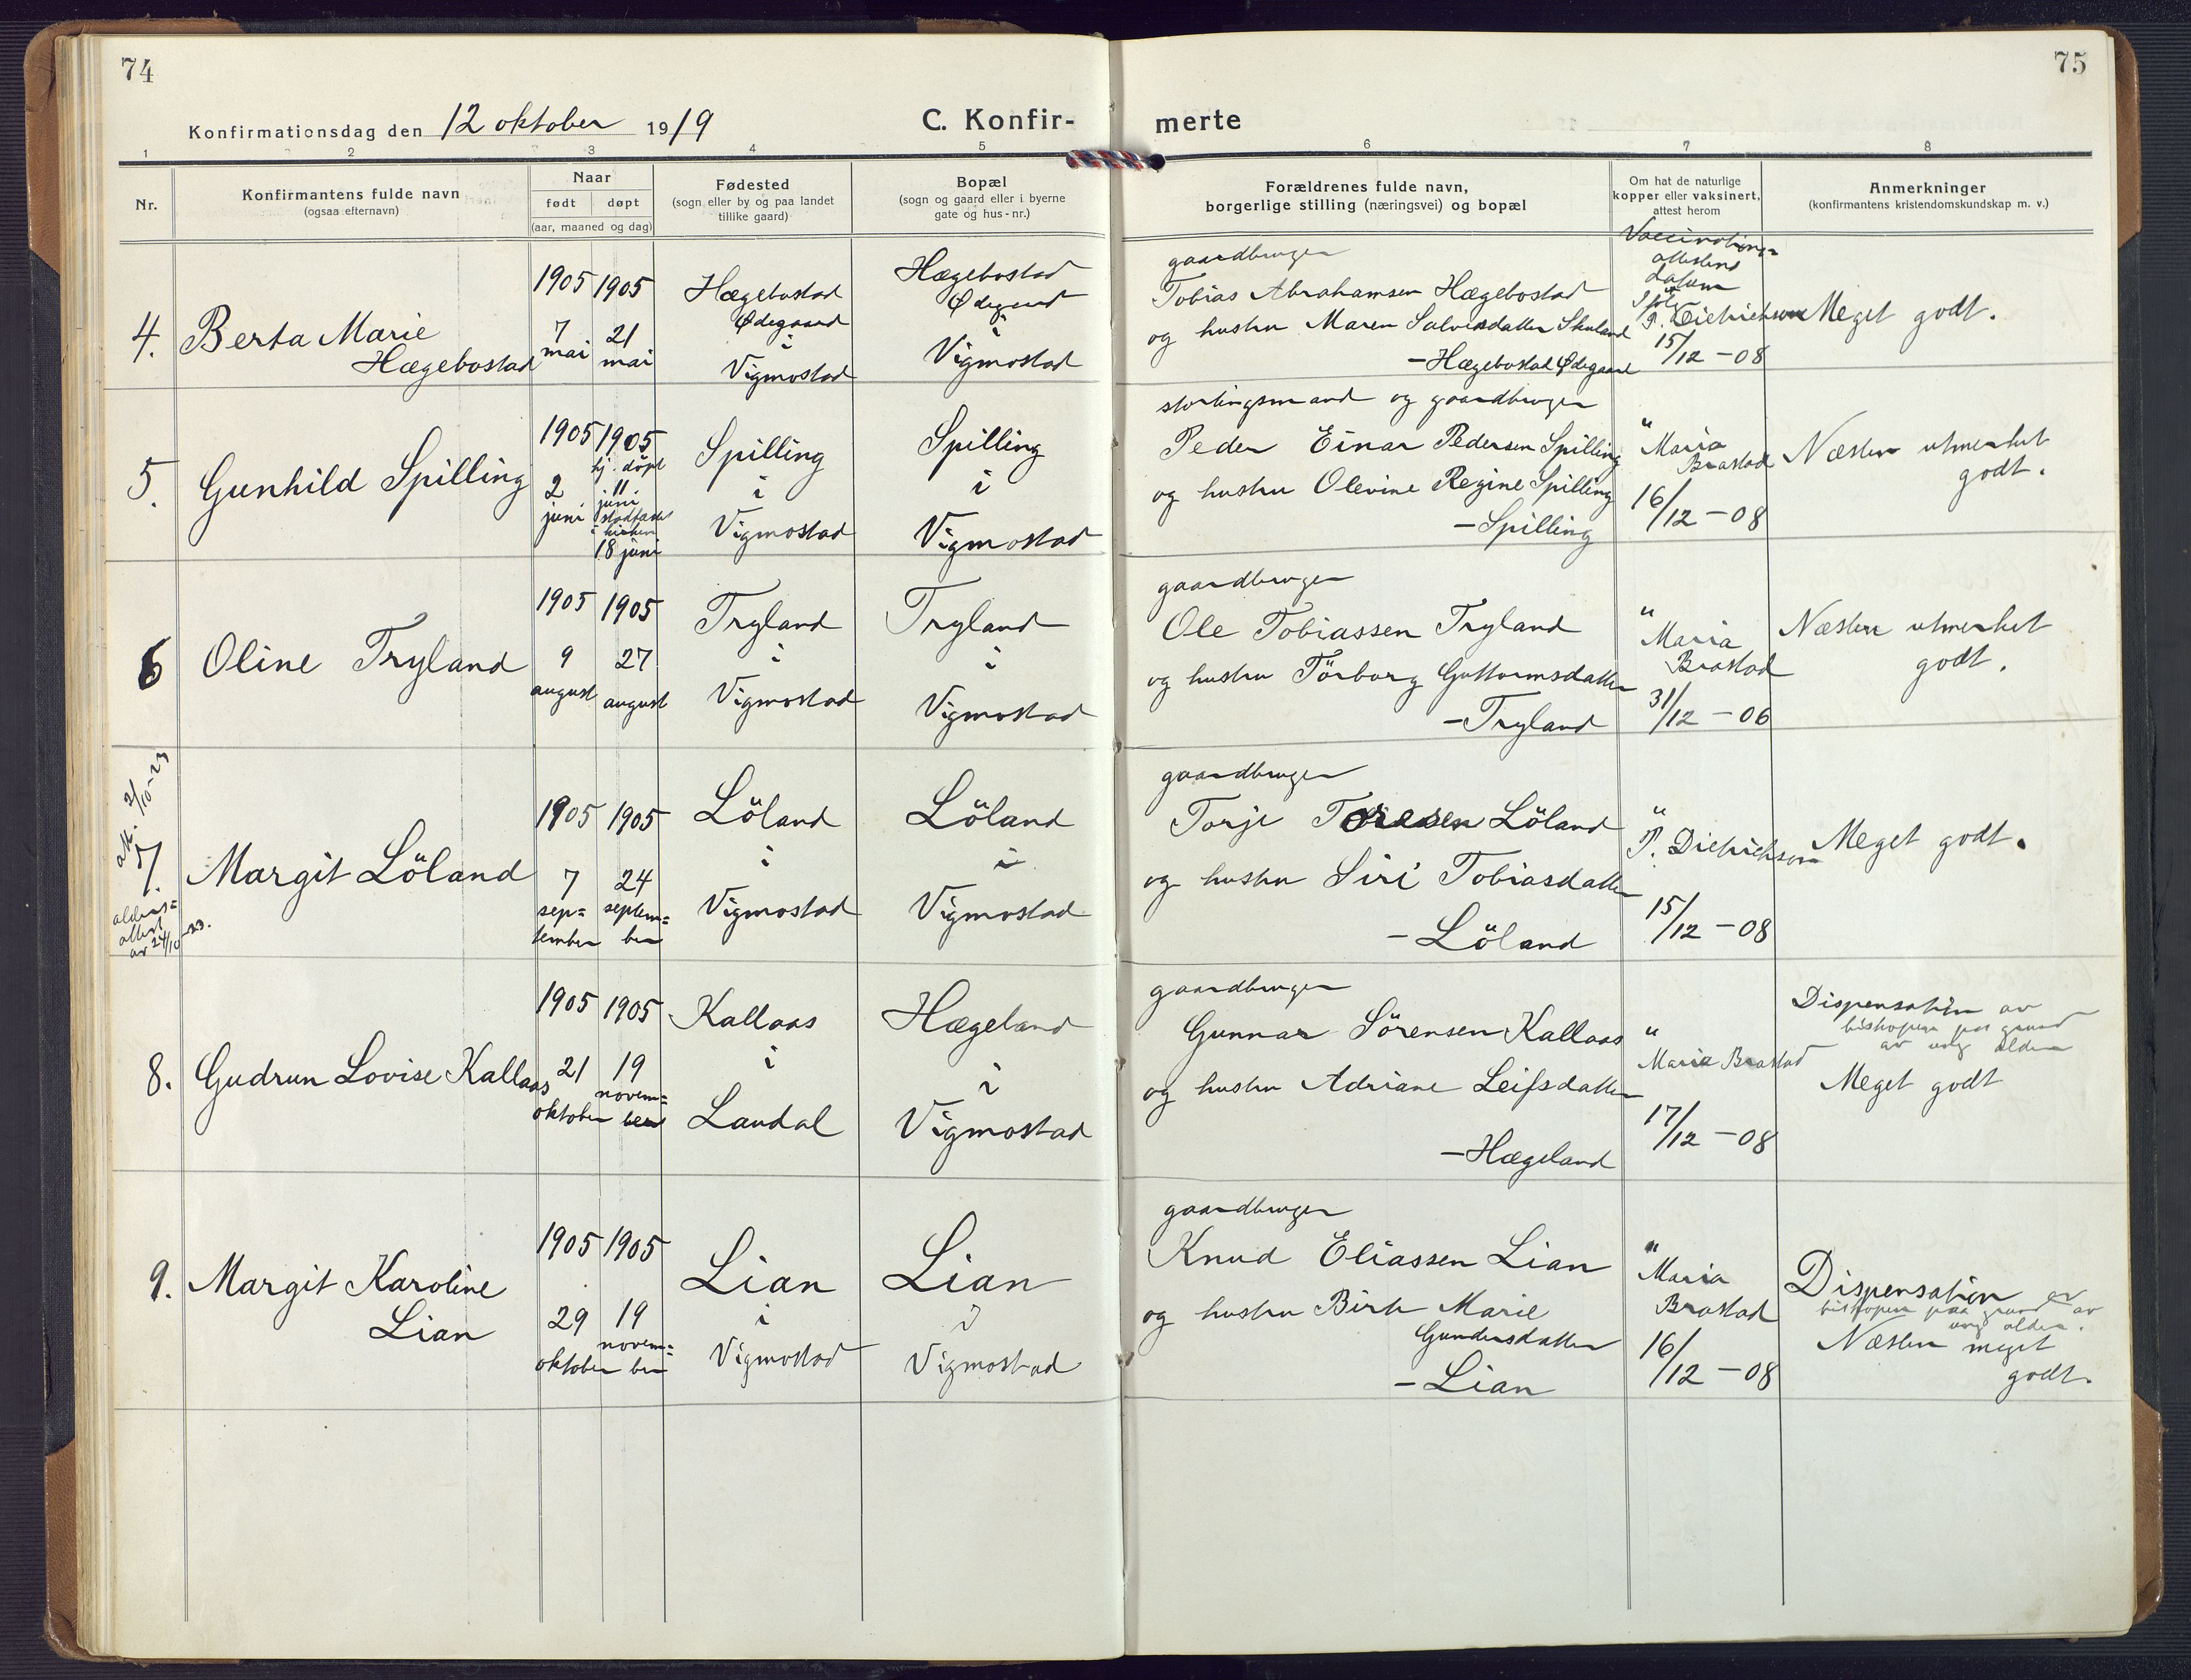 74
75
Konfirmationsdag den 12 oktober 1919
C. Konfir-
merte
1 2 3 4 5 6 7 8
Nr.
Konfirmantens fulde navn
(ogsaa efternavn)
Naar
født døpt
(aar, maaned og dag)
Fødested
(sogn eller by og paa landet
tillike gaard)
Bopæl
(sogn og gaard eller i byerne
gate og hus-nr.)
Forældrenes fulde navn,
borgerlige stilling (næringsvei) og bopæl
Om hat de naturlige
kopper eller vaksinert,
attest herom
Anmerkninger
(konfirmantens kristendomskundskap m. v.)
4.
Berta Marie
Hægebostad
1905
7
mai
1905
21
mai
Hægebostad
Ødegaard
i
Vigmostad
Hægebostad
Ødegaard
i
Vigmostad
gaardbruger
Tobias Abrahamsen Hægebostad
og hustru Maren Salvesdatter Skuland
-Hægebostad Ødegaard
Vaccinations=
attestens
datum
P. Dietrichson
15/12 - 08
Meget godt.
5.
Gunhild Spilling
1905
2
juni
1905
hj. döpt
11
juni
stadfæstet
i kirken
18 juni
Spilling
i
Vigmostad
Spilling
i
Vigmostad
stortingsmand og gaardbruger
Peder Einar Pedersen Spilling
og hustru Olevine Regine Spilling
-Spilling
"
Maria
Brastad
16/12 - 08
Næsten utmerket
godt.
6
Oline Tryland
1905
9
august
1905
27
august
Tryland
i
Vigmostad
Tryland
i
Vigmostad
gaardbruger
Ole Tobiassen Tryland
og hustru Törborg Guttormsdatter
-Tryland
"
Maria
Brastad
31/12 - 06
Næsten utmerket
godt.
att. 2/10-23
7.
alders=
attest
av 24/10-23.
Margit Löland
1905
7
sep=
tember
1905
24
septem=
ber
Löland
i
Vigmostad
Löland
i
Vigmostad
gaardbruger
Torje Toresen Löland
og hustru Siri Tobiasdatter
- Löland
"
P. Dietrichson
15/12 - 08
Meget godt.
8.
Gudrun Lovise Kallaas
1905
21
oktober
1905
19
novem=
ber
Kallaas
i
Laudal
Hægeland
i
Vigmostad
gaardbruger
Gunnar Sörensen Kallaas
og hustru Adriane Leifsdatter
-Hægeland
"
Maria Brastad
17/12 - 08
Dispensation av
biskopen paa grund
av ung alder
Meget godt
9.
Margit Karoline
Lian
1905
29
oktober
1905
19
novem=
ber
Lian
i
Vigmostad
Lian
i
Vigmostad
gaardbruger
Knud Eliassen Lian
og hustru Birte Marie
Gundersdatter
- Lian
"
Maria
Brastad
16/12 - 08
Dispensation av
biskopen paa grund av
ung alder.
Næsten meget
godt.